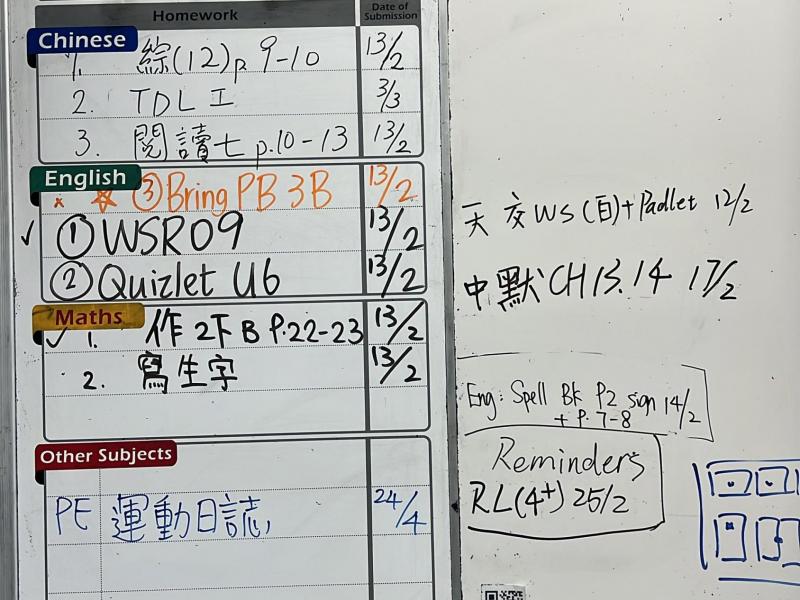 Homework Date of Submission
Chinese
1. 綜(12)p. 9-10 13/2
2. TDL I 3/3
3. 閱讀七 p.10-13 13/2
English
③ Bring PB 3B 13/2
① WSR09 13/2
② Quizlet U6 13/2
Maths
1. 作2下B P.22-23 13/2
2. 寫生字 13/2
Other Subjects
PE 運動日誌, 24/4
天 交 WS (自)+Padlet 12/2
中默CH13.14 17/2
Eng: Spell Bk P2 sign 14/2
+ P. 7-8
Reminders
RL(4+) 25/2